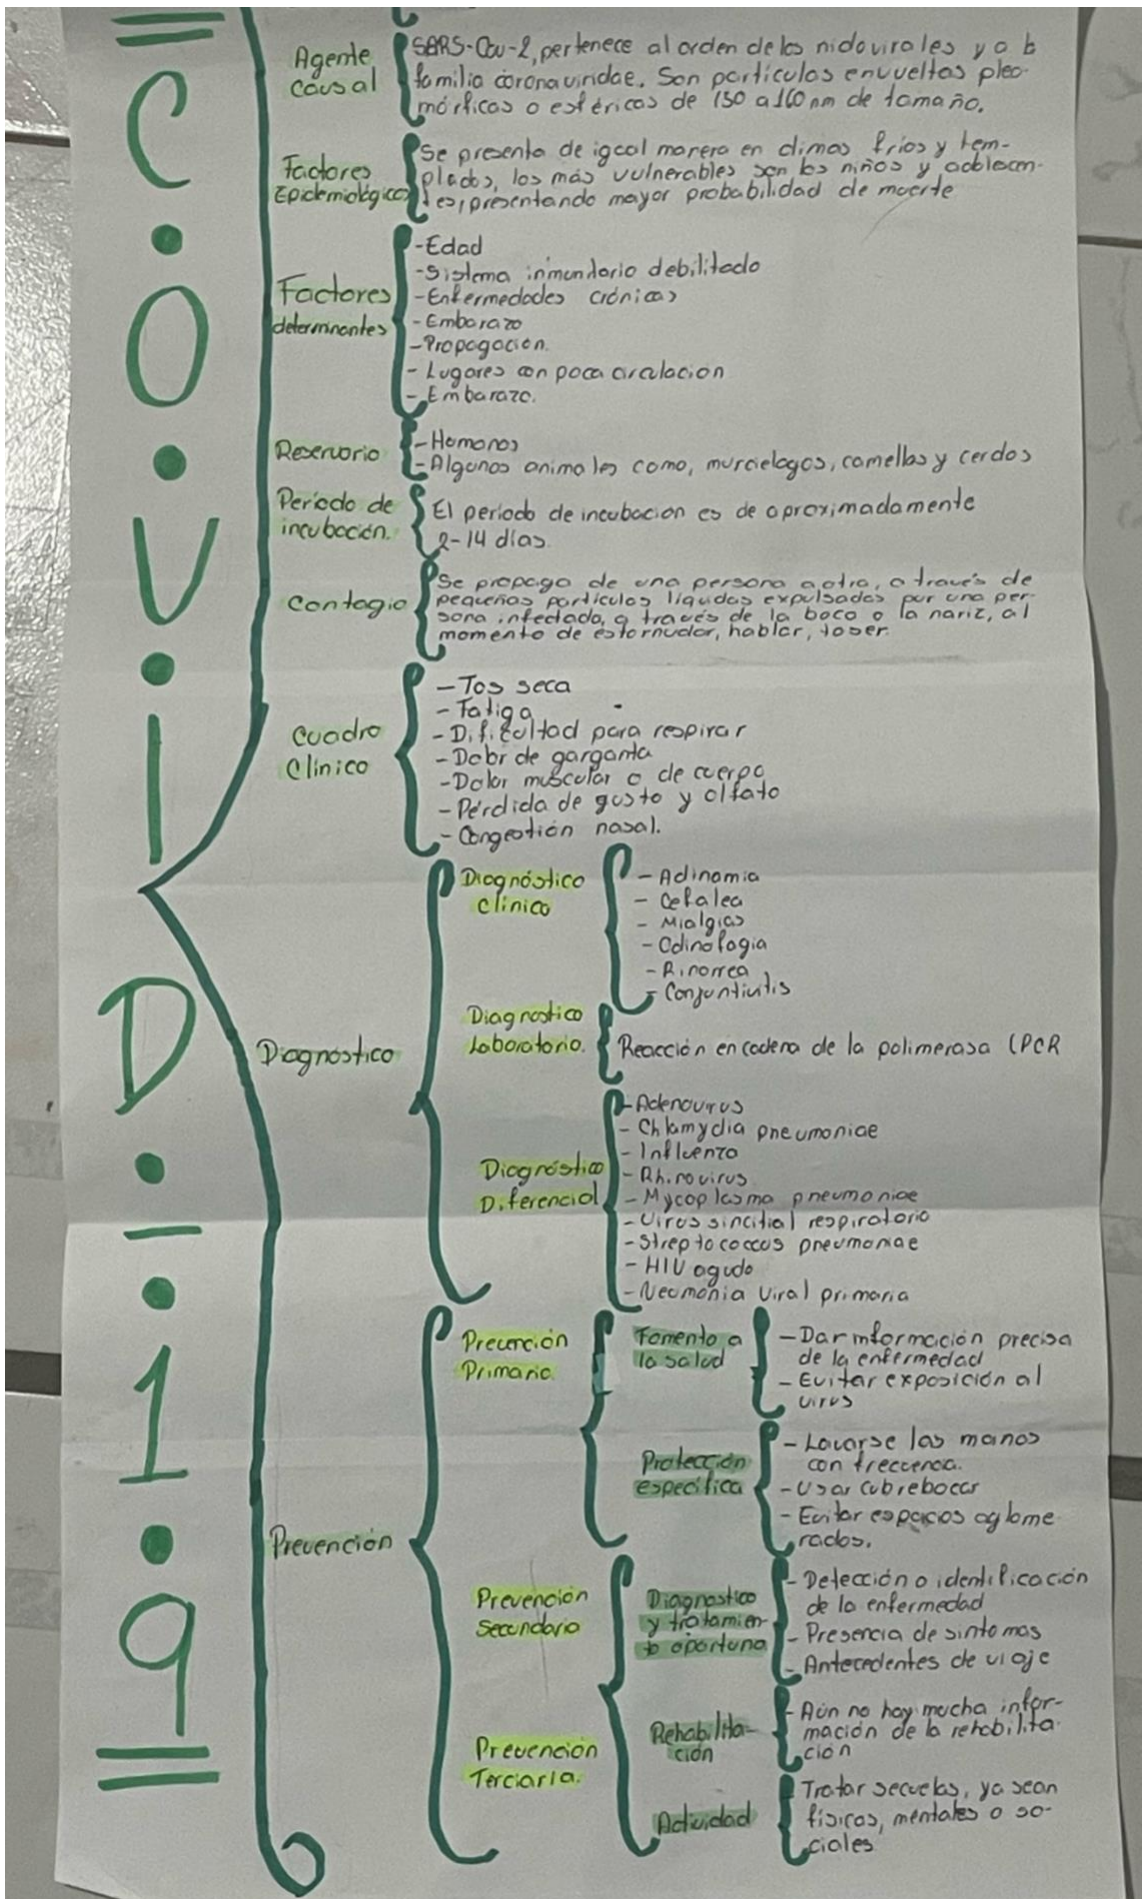 C.O.V.I.D.-.1.9
Agente
causal
SARS-Cov-2, pertenece al orden de los nidovirales y a la
familia coronaviridae. Son partículas envueltas pleo-
mórficas o esféricas de 150 a 160 nm de tamaño.
Factores
Epidemiológicos
Se presenta de igual manera en climas fríos y tem-
plados, los más vulnerables son los niños y adolecen-
tes, presentando mayor probabilidad de muerte
Factores
determinantes
-Edad
-Sistema inmundario debilitado
-Enfermedades crónicas
-Embarazo
-Propagación.
- Lugares con poca circulación
- Embarazo.
Reservorio
-Humanos
-Algunos animales como, murcielagos, camellos y cerdos
Período de
incubación.
El período de incubación es de aproximadamente
2-14 días.
Contagio
Se propaga de una persona a otra, a través de
pequeñas partículas líquidas expulsadas por una per-
sona infectada, a través de la boca o la nariz, al
momento de estornudar, hablar, toser.
Cuadro
Clínico
- Tos seca
- Fatiga
- Dificultad para respirar
- Dolor de garganta
- Dolor muscular o de cuerpo
- Pérdida de gusto y olfato
- Congestión nasal.
Diagnóstico
Diagnóstico
clínico
- Adinamia
- Cefalea
- Mialgias
- Odinofagia
- Rinorrea
- Conjuntivitis
Diagnostico
Laboratorio.
Reacción en cadena de la polimerasa (PCR
Diagnóstico
Diferencial
- Adenovirus
- Chlamydia pneumoniae
- Influenza
- Rhinovirus
- Mycoplasma pneumoniae
- Virus sincitial respiratorio
- Streptococcus pneumoniae
- HIV agudo
- Neumonia viral primaria
Prevención
Prevención
Primaria.
Fomento a
la salud
- Dar información precisa
de la enfermedad
- Evitar exposición al
virus
Protección
especifica
- Lavarse las manos
con frecuencia.
- Usar cubrebocas
- Evitar espacios aglome
rados.
Prevención
Secundaria
Diagnostico
y tratamien-
to oportuno
- Detección o identificación
de la enfermedad
- Presencia de sintomas
- Antecedentes de viaje
Prevención
Terciaria.
Rehabilita-
ción
- Aún no hay mucha infor-
mación de la rehabilita-
ción
Actividad
Tratar secuelas, ya sean
físicas, mentales o so-
ciales